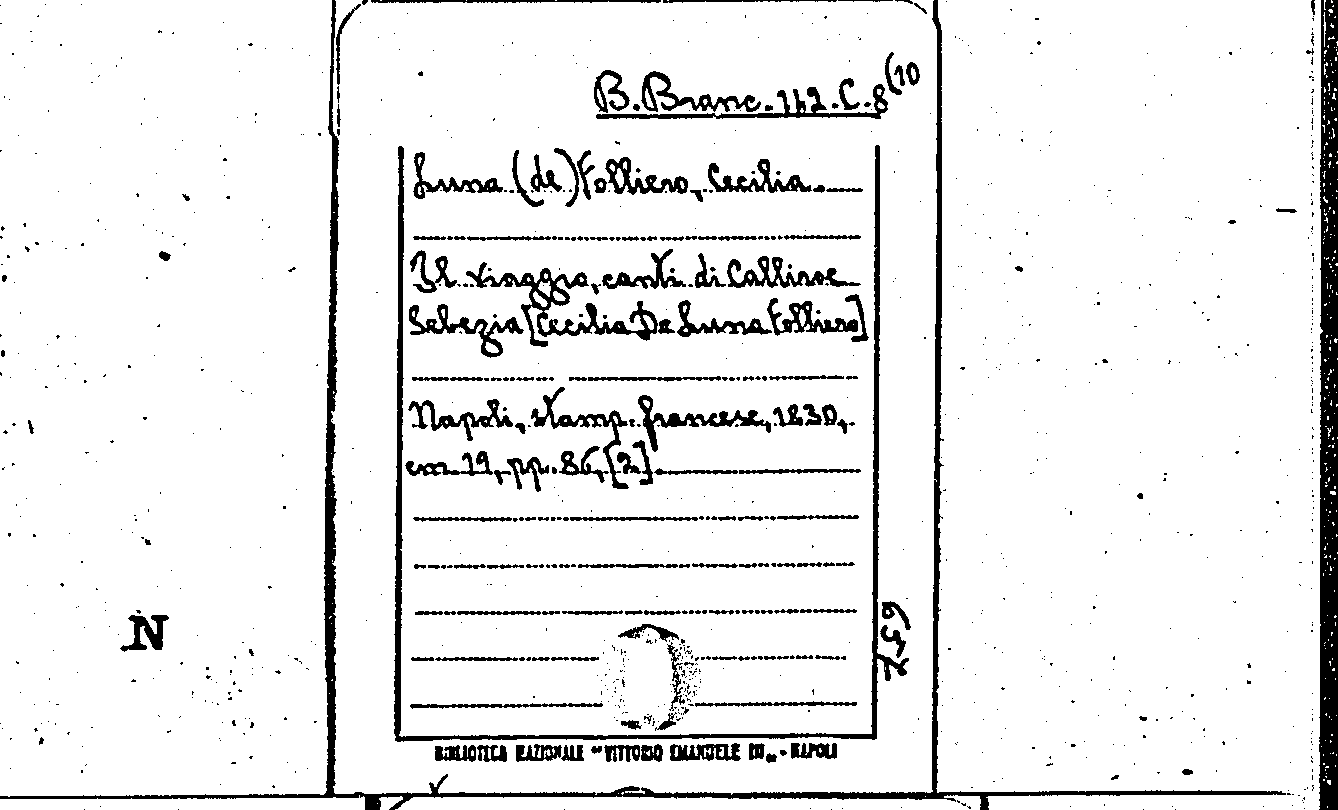 B. Branc. 142. C. 8(10
Luna (de) Folliero, Cecilia.
Il viaggio, canti di Calliroe
Sebezia [Cecilia De Luna Folliero]
Napoli, stamp. francese, 1830,
cm 19, pp. 86, [2].
N
BIBLIOTECA NAZIONALE "VITTORIO EMANUELE III„ - NAPOLI